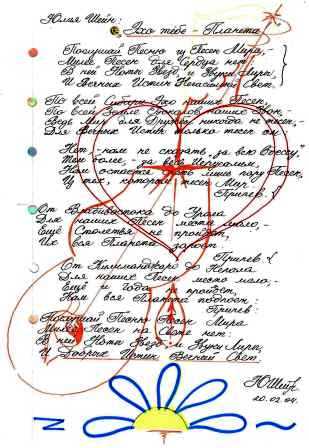 Юлия Шейн:
Эхо тебе - Планета
Послушай Песню из Песен Мира,-
Милее Песен для Сердца нет:
В ней Ноты Звёзд, и Звуки Мира,
И Вечных Истин Негасимый Свет.
По всей Сибири Эхо наших Песен,
По всей Земле
Ведь Мир для Друзей никогда не тесен,-
Для Вечных Истин только тесен он.
Нет - нам не сказать "за всю Одессу",
Тем более,- за весь Иерусалим,
Нам остаётся лишь пару Песен,
У тех, которым тесен Мир.
Припев:
От Владивостока до Урала
Для наших Песен места мало,-
Ещё Столетья не пройдёт,
Их вся Планета запоёт.
Припев:
От Килиманджаро до Непала
Для наших Песен места мало,-
Ещё и Года не пройдёт,
Нам вся Планета подпоёт:
Припев:
Послушай Песню Песен Мира
Милее Песен на Свете нет:
В ней Ноты Звёзд и Звуки Мира,
И Добрых Истин Вечный Свет.
Ю Шейн
20.02.04.